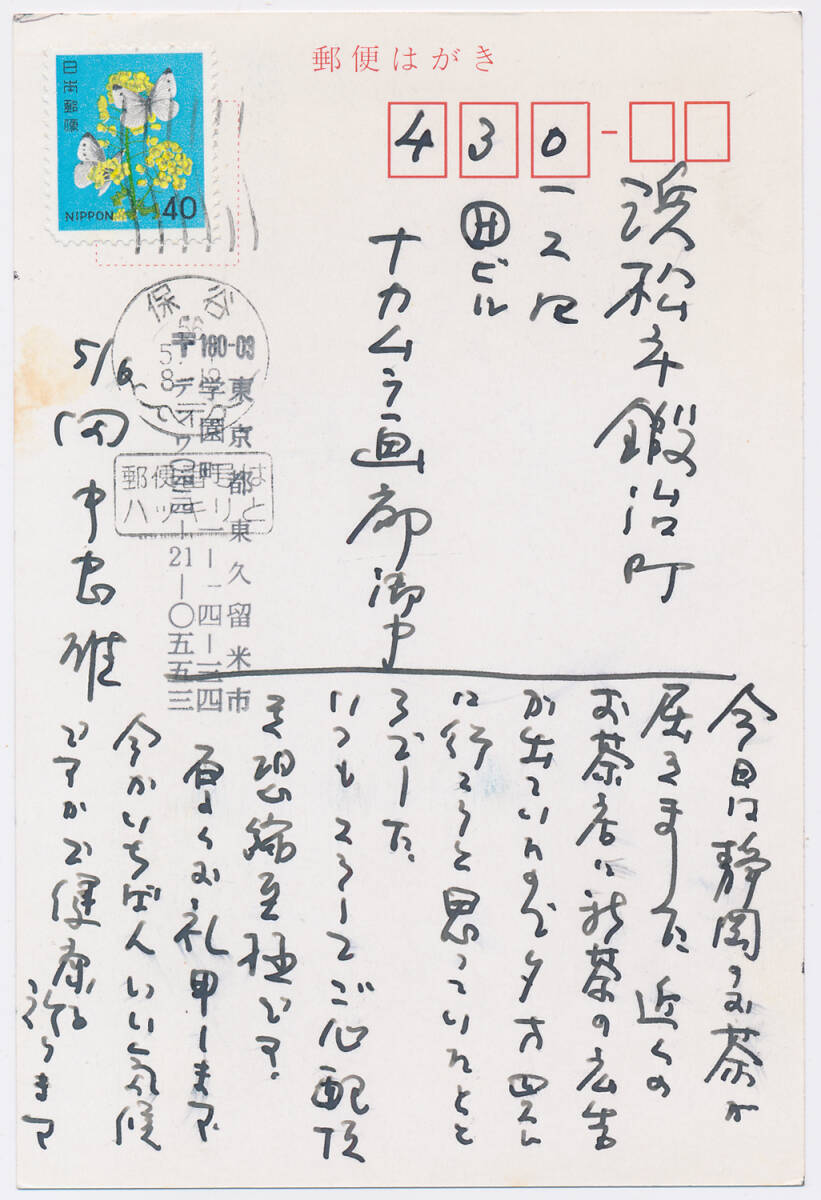 郵便はがき
日本郵便
NIPPON 40
430
浜松市鍛冶町
一二四
㊐ビル
ナカムラ画廊御中
保谷
56
5.
8-12
郵便番号は
ハッキリと
〒180-03
東京都東久留米市
学園町一ー一四ー三四
デンワ〇四二四ー21ー〇五五三
5/6
田中忠雄
今日は静岡のお茶が
届きました 近くの
お茶店に新茶の広告
が出ていたので夕方四時に
に行こうと思っていたとこ
ろでした。
いつもこうしてご心配頂
き恐縮至極です。
厚くお礼申します
今がいちばんいい気候
ですがご健康を
祈ります